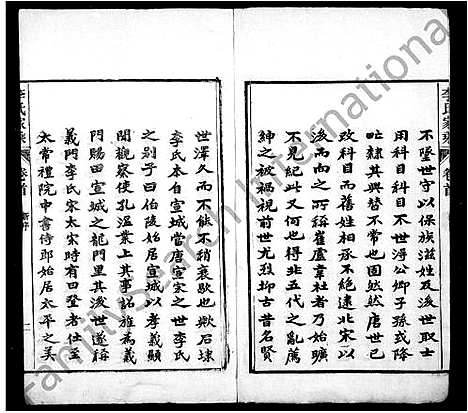 李氏家乘
卷首
不墜世守以保族滋姓及後世取士
用科目科目不世得公卿子孫或降
在隸其興替不常也固然然唐世已
後而所稱崔盧韋杜者乃始曠
不見紀此又何也得非五代之亂薦
紳之被禍視前世尤烈抑古昔名賢
世澤久而不能不稍衰歟石埭
李氏本自宣城當唐宣宗之世李氏
之別子曰伯陵始居宣城以孝義顯
聞觀察使孔溫業上其事詔旌為義
門賜田宣城之龍門里其後世遂稱
義門李氏宋太宗時有曰登者仕至
太常禮院中書侍郎始居太平之美
李氏家乘
卷首
FamilySearch International